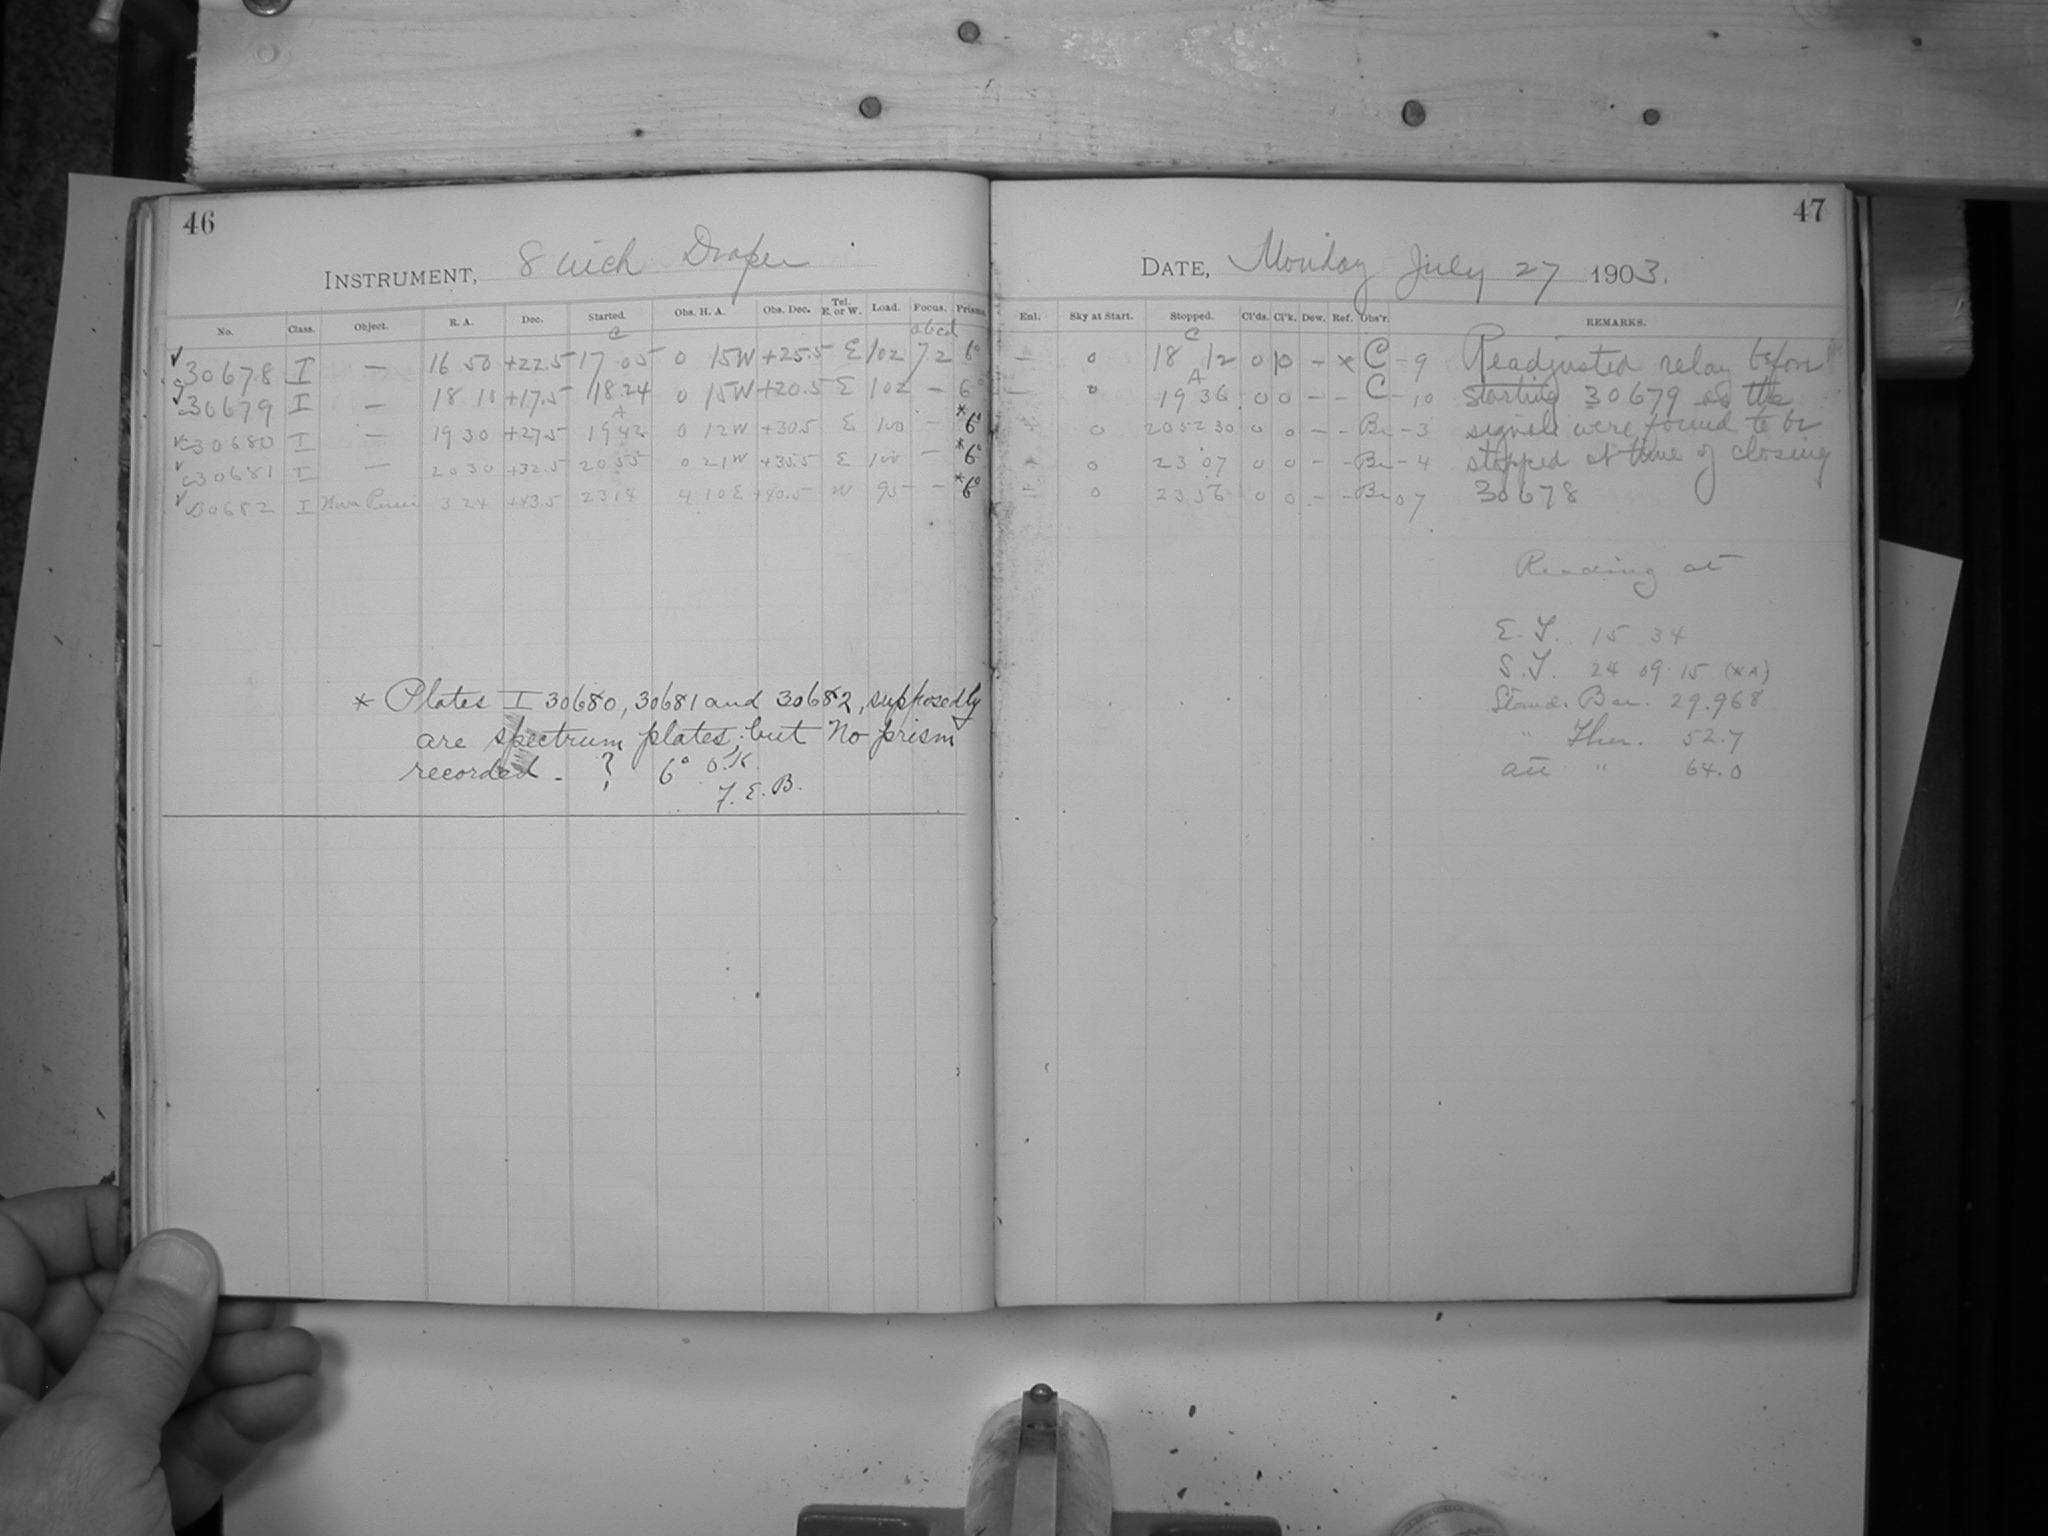 46
INSTRUMENT, 8 inch Draper
No. Class. Object. R. A. Dec. Started. Obs. H. A. Obs. Dec. Tel. E. or W. Load. Focus. Prisms
C abcd
30678 I — 16 50 +22.5 17 05 0 15W +25.5 E 102 7.2 6°
30679 I — 18 10 +17.5 18.24 0 15W +20.5 E 102 — 6°
A
30680 I — 19 30 +27.5 19 42 0 12W +30.5 E 100 — *6°
30681 I — 20 30 +32.5 20 55 0 21W +35.5 E 100 — *6°
30682 I Nova Persei 3 24 +43.5 23 14 4 10 E +40.5 W 95 — *6°
* Plates I 30680, 30681 and 30682, supposedly
are spectrum plates, but No prism
recorded - ? 6° O.K.
F. E. B.
47
DATE, Monday July 27 1903.
Enl. Sky at Start. Stopped. Cl'ds. Cl'k. Dew. Ref. Obs'r. REMARKS.
C
— 0 18 12 0 0 — x C - 9 Readjusted relay before
A
— 0 19 36 0 0 - - C - 10 starting 30679 as the
— 0 20 52 30 0 0 - - Be - 3 signals were found to be
— 0 23 07 0 0 - - Be - 4 stopped at time of closing
— 0 23 56 0 0 - - Be 07 30678
Reading at
E. T. 15 34
S. T. 24 09 15 (*A)
Stand. Bar. 29.968
" Ther. 52.7
att " 64.0